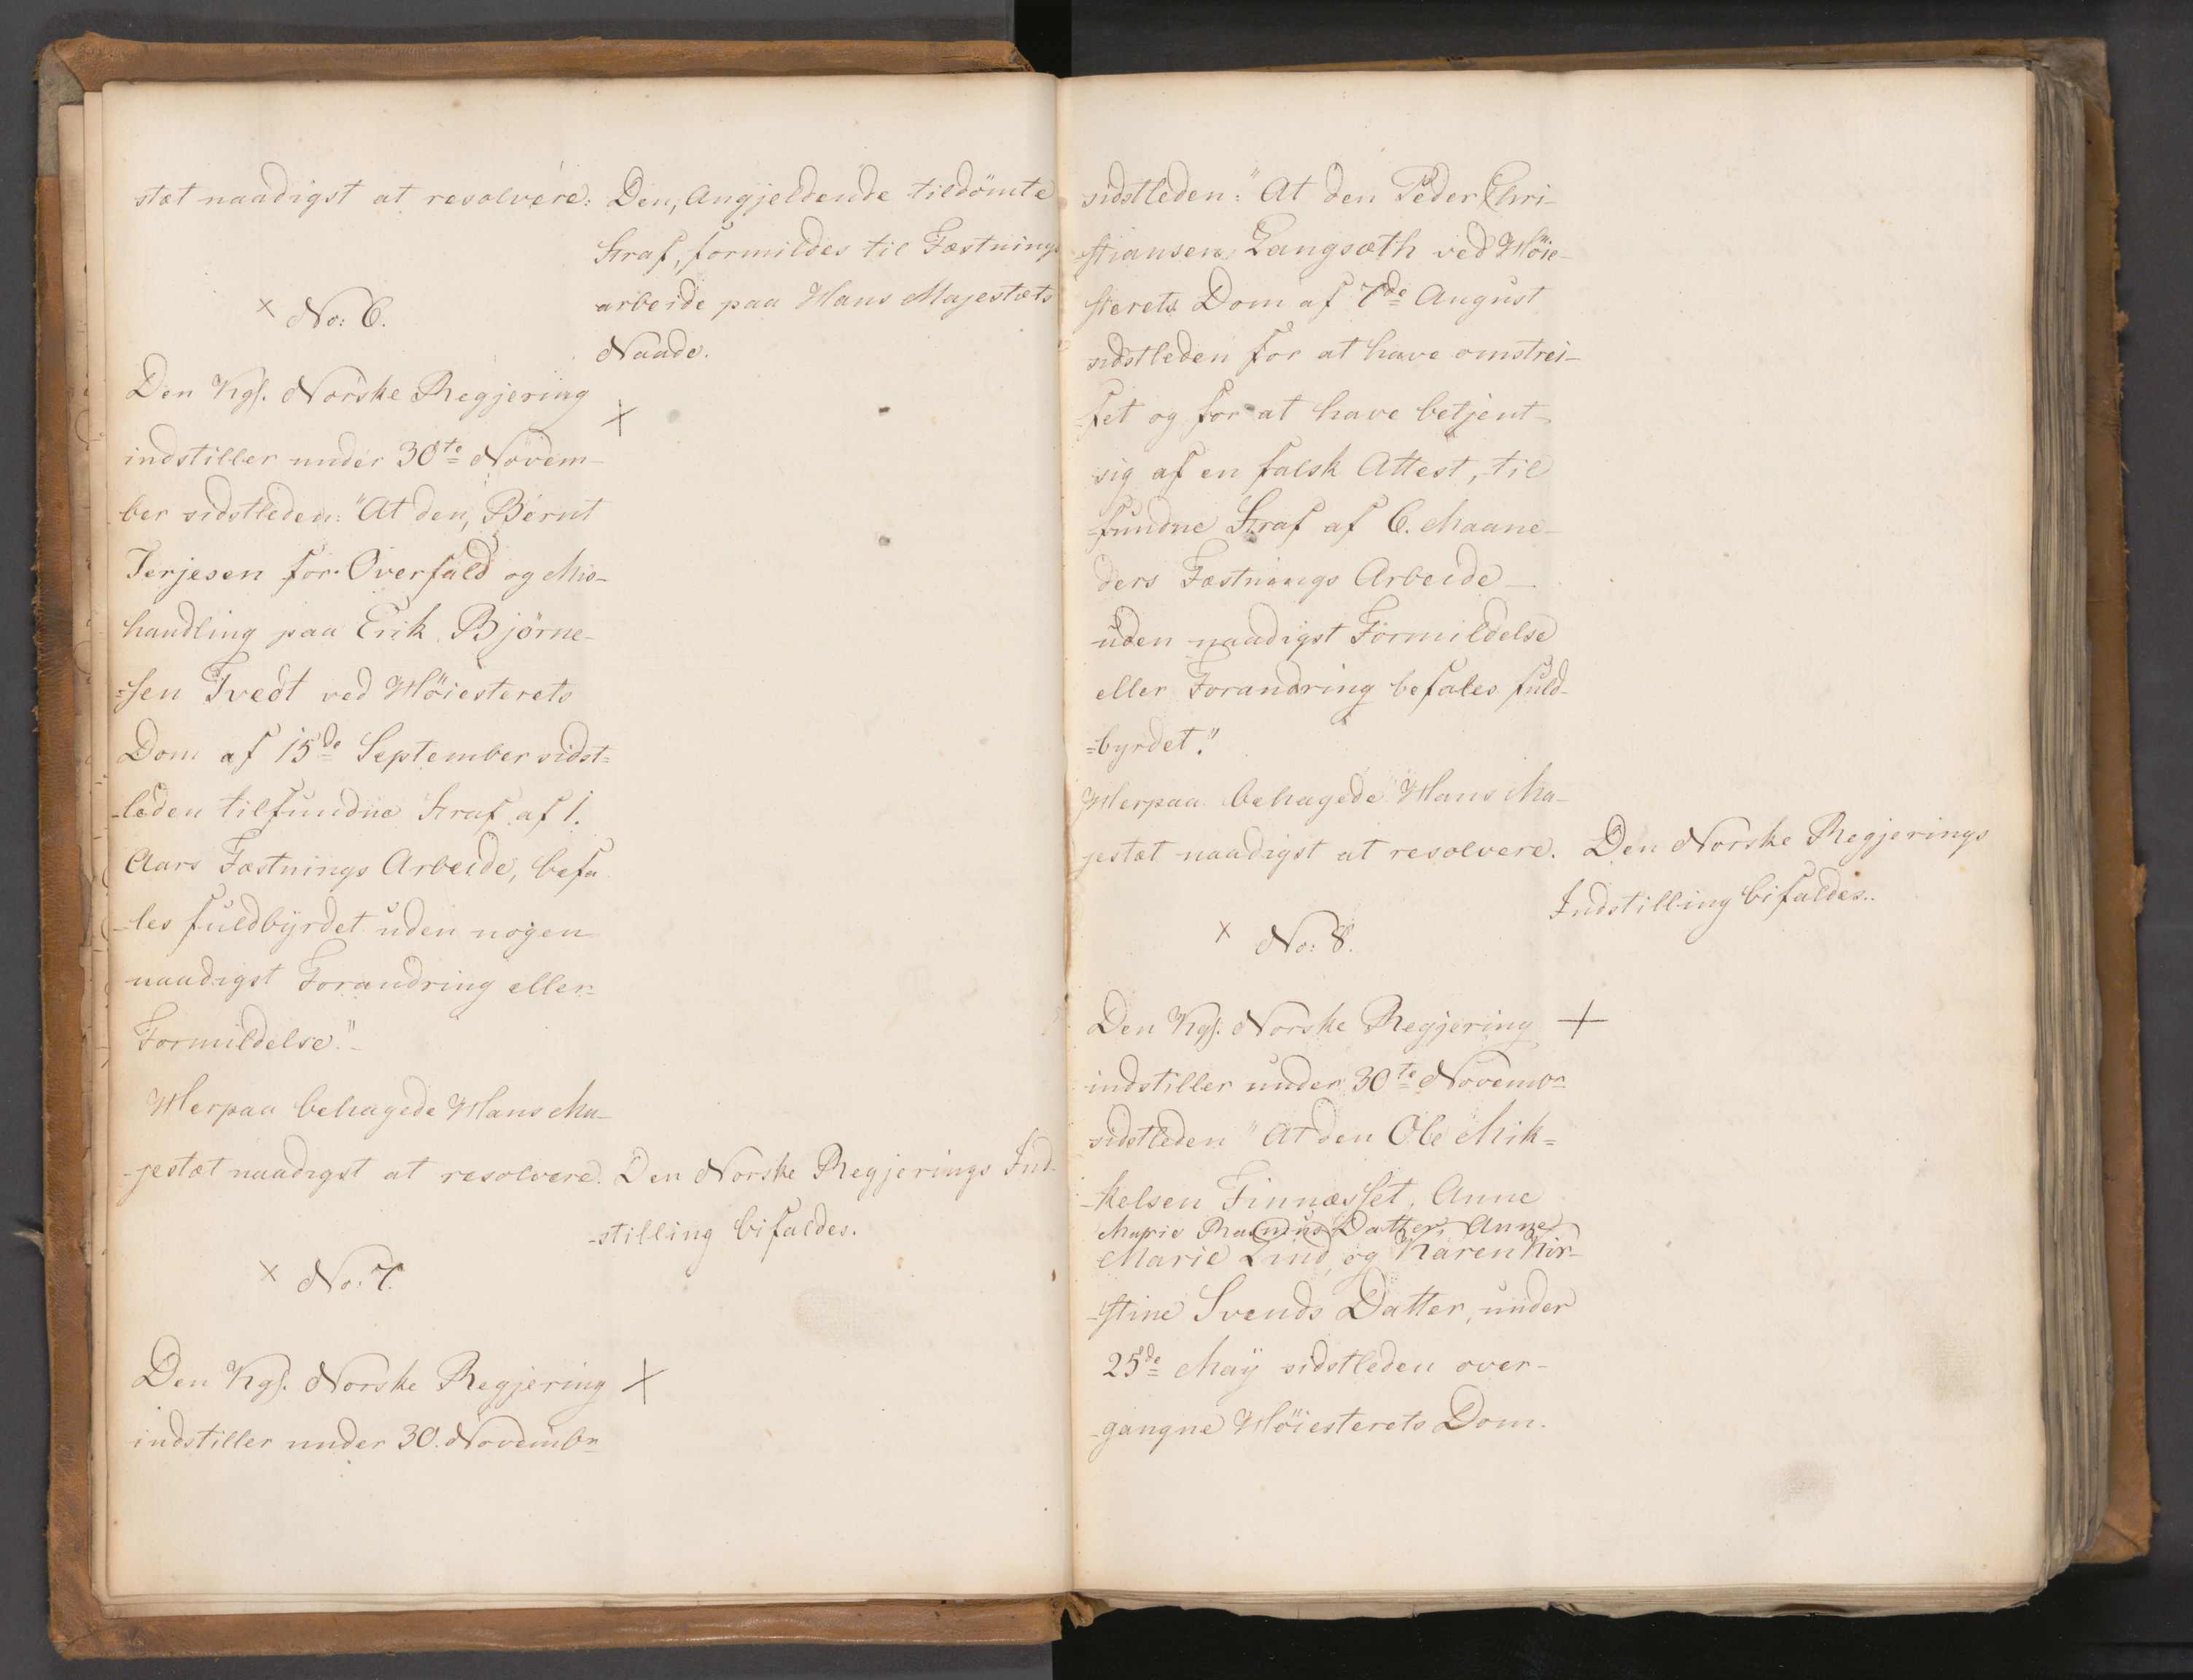 stæt naadigst at resolvere: Den, Angjeldende tildömte
Straf, formildes til Fæstnings
arbeide paa Hans Majestæts
Naade.
× No: 6.
Den Kgl. Norske Regjering ×
indstiller under 30te Novem-
ber sidstleden: "At den, Bernt
Terjesen for Overfald og Mis-
handling paa Erik Björne-
-sen Tvedt ved Höiesterets
Dom af 15de September sidst-
-leden tilfundne Straf af 1.
Aars Fæstnings Arbeide, befa
-les fuldbyrdet uden nogen
naadigst Forandring eller
Formildelse."-
Herpaa behagede Hans Ma-
-jestæt naadigst at resolvere. Den Norske Regjerings Ind-
-stilling bifaldes.
× No: 7.
Den Kgl. Norske Regjering ×
indstiller under 30. Novembr
sidstleden: "At den Peder Chri-
-stiansen Langsæth ved Höie-
sterets Dom af 7de August
sidstleden for at have omstrei-
-fet og for at have betjent
sig af en falsk Attest, til
-fundne Straf af 6. Maane-
ders Fæstnings Arbeide
uden naadigst Formildelse
eller Forandring befales fuld-
-byrdet."
Herpaa behagede Hans Ma-
jestæt naadigst at resolvere. Den Norske Regjerings
Indstilling bifaldes..
× No: 8.
Den Kgl. Norske Regjering +
indstiller under 30te Novembr
sidstleden "At den Ole Mik-
-kelsen Finnæsset, Anne
Marie Rasmus Datter, Anne
Marie Lind, og Karen Kir-
-stine Svends Datter, under
25de Maÿ sidstleden over-
-gangne Höiesterets Dom.